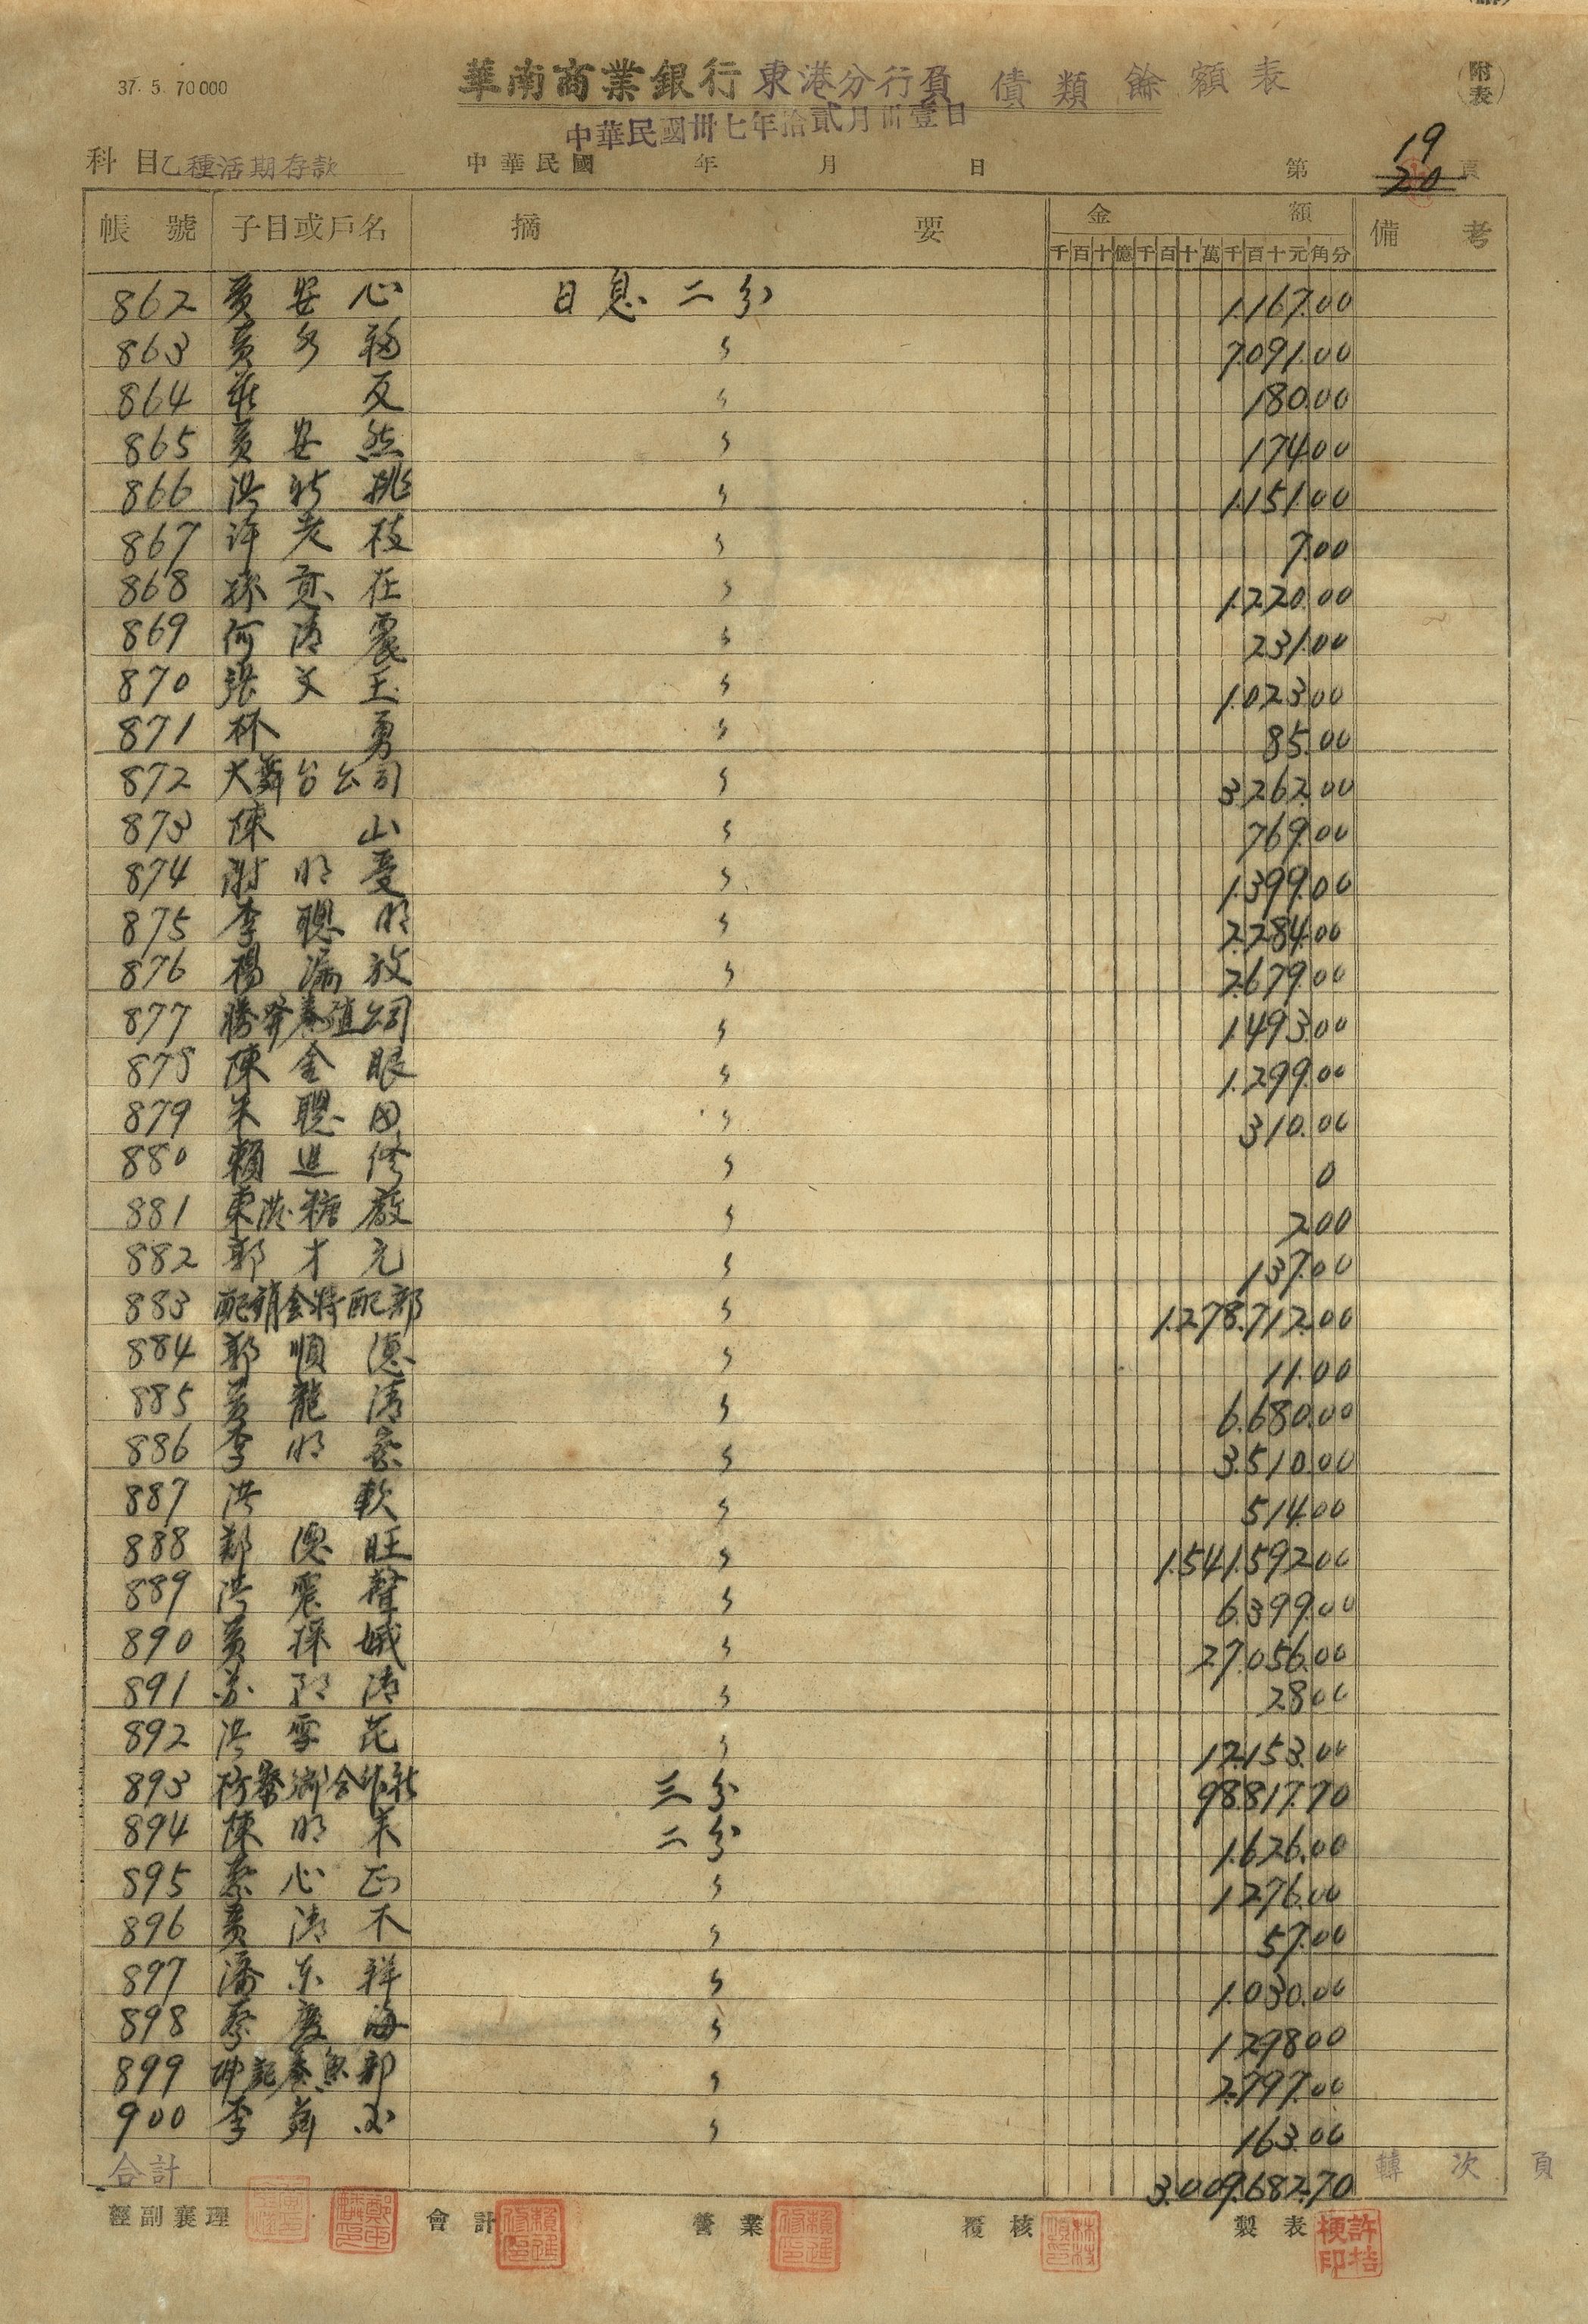 37. 5. 70000
華南商業銀行東港分行負債類餘額表
附表
中華民國卅七年拾貳月卅壹日
科目乙種活期存款 中華民國 年 月 日 第 19 頁
20
帳號 子目或戶名 摘要 金額 備考
千百十億千百十萬千百十元角分
862 黃安心 日息二分 1.167.00
863 黃 福 〃 7.091.00
864 莊 反 〃 180.00
865 黃安然 〃 174.00
866 洪新挑 〃 1.151.00
867 許老枝 〃 7.00
868 孫意在 〃 1.220.00
869 何清震 〃 231.00
870 張文玉 〃 1.023.00
871 林勇 〃 85.00
872 大舞台公司 〃 3.262.00
873 陳山 〃 769.00
874 謝明受 〃 1.399.00
875 李聰明 〃 2.284.00
876 楊漏放 〃 2.679.00
877 勝發養殖公司 〃 1.493.00
878 陳金眼 〃 1.299.00
879 朱聰田 〃 310.00
880 賴進修 〃 0
881 東港糖廠 〃 2.00
882 郭才元 〃 137.00
883 配銷会特配部 〃 1.278.712.00
884 郭順德 〃 11.00
885 黃龍清 〃 6.680.00
886 李明 〃 3.510.00
887 洪軟 〃 514.00
888 鄭德旺 〃 1.541.592.00
889 洪震聲 〃 6.399.00
890 黃採娥 〃 27.056.00
891 苏 清 〃 28.00
892 洪雪花 〃 12.153.00
893 枋寮鄉合作社 三分 98.817.70
894 陳明來 二分 1.626.00
895 蔡心正 〃 1.276.00
896 黃清木 〃 57.00
897 潘东祥 〃 1.030.00
898 蔡慶海 〃 1.298.00
899 坤記養魚部 〃 2.797.00
900 李 〃 163.00
合計 3.009.682.70 轉次頁
經副襄理 會計 營業 覆核 製表